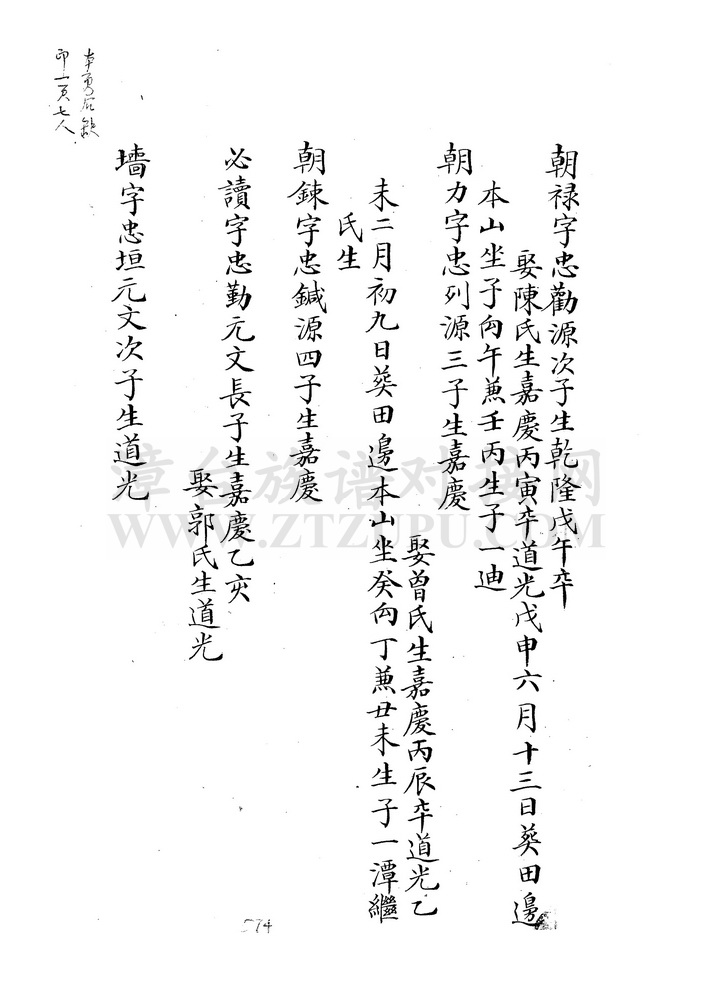 朝禄字忠勸源次子生乾隆戊午卒
娶陳氏生嘉慶丙寅卒道光戊申六月十三日葬田邊
本山坐子向午兼壬丙生子一迪
朝力字忠列源三子生嘉慶
娶曾氏生嘉慶丙辰卒道光乙
未二月初九日葬田邊本山坐癸向丁兼丑未生子一潭繼
氏生
朝鍊字忠鍼源四子生嘉慶
必讀字忠勤元文長子生嘉慶乙亥
娶郭氏生道光
墻字忠垣元文次子生道光
印一頁七人
漳台族谱对接网
WWW.ZTZUPU.COM
574